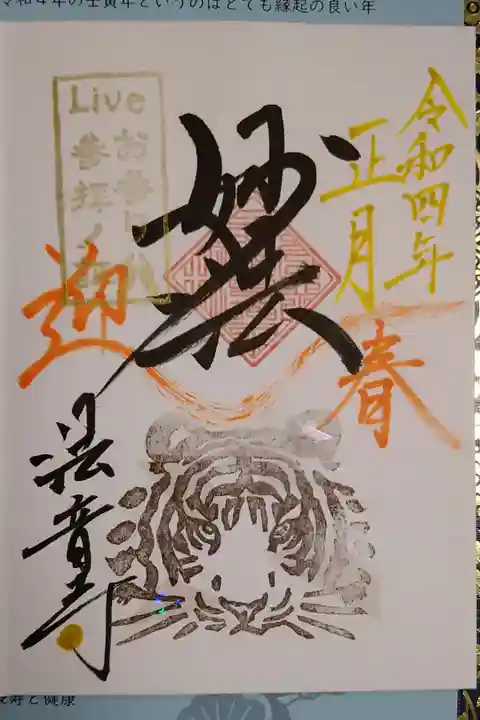 令和4年の壬寅年というのはとても縁起の良い年
令和四年
正月
妙法
Live
お参り
参拝
迎
春
法音寺
長寿と健康